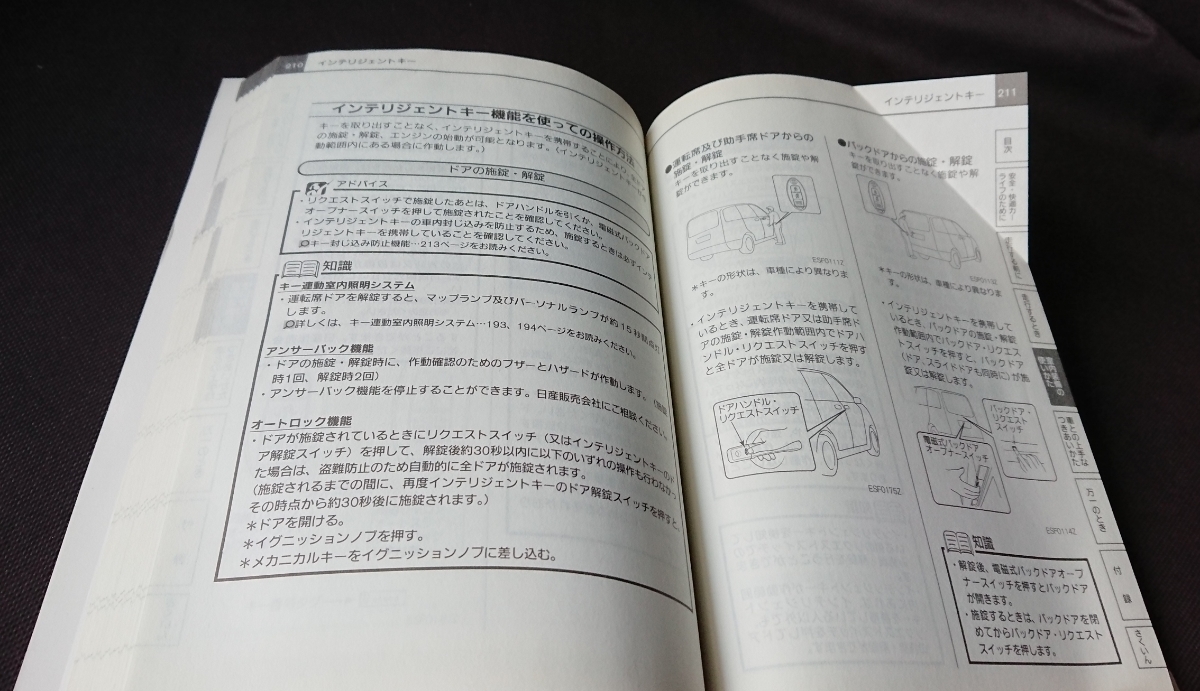 210 インテリジェントキー
インテリジェントキー機能を使っての操作方法
キーを取り出すことなく、インテリジェントキーを携帯することにより、
の施錠・解錠、エンジンの始動が可能となります。(インテリジェントキー
動範囲内にある場合に作動します。)
ドアの施錠・解錠
アドバイス
・リクエストスイッチで施錠したあとは、ドアハンドルを引くか、電磁式バックドア
オープナースイッチを押して施錠されたことを確認してください。
・インテリジェントキーの車内封じ込みを防止するため、施錠するときは必ずインテ
リジェントキーを携帯していることを確認してください。
キー封じ込み防止機能…213ページをお読みください。
知識
キー連動室内照明システム
・運転席ドアを解錠すると、マップランプ及びパーソナルランプが約15秒間点灯
します。
詳しくは、キー連動室内照明システム…193、194ページをお読みください。
アンサーバック機能
・ドアの施錠・解錠時に、作動確認のためのブザーとハザードが作動します。(施錠
時1回、解錠時2回)
・アンサーバック機能を停止することができます。日産販売会社にご相談ください。
オートロック機能
・ドアが施錠されているときにリクエストスイッチ(又はインテリジェントキーのド
ア解錠スイッチ)を押して、解錠後約30秒以内に以下のいずれの操作も行わなかっ
た場合は、盗難防止のため自動的に全ドアが施錠されます。
(施錠されるまでの間に、再度インテリジェントキーのドア解錠スイッチを押すと、
その時点から約30秒後に施錠されます。)
＊ドアを開ける。
＊イグニッションノブを押す。
＊メカニカルキーをイグニッションノブに差し込む。
インテリジェントキー 211
●運転席及び助手席ドアからの
施錠・解錠
キーを取り出すことなく施錠や解
錠ができます。
ESF0111Z
＊キーの形状は、車種により異なりま
す。
・インテリジェントキーを携帯して
いるとき、運転席ドア又は助手席ド
アの施錠・解錠作動範囲内でドアハ
ンドル・リクエストスイッチを押す
と全ドアが施錠又は解錠します。
ドアハンドル・
リクエストスイッチ
ESF0175Z
●バックドアからの施錠・解錠
キーを取り出すことなく施錠や解
錠ができます。
＊キーの形状は、車種により異なりま
す。
・インテリジェントキーを携帯して
いるとき、バックドアの施錠・解錠
作動範囲内でバックドア・リクエス
トスイッチを押すと、全ドア
(ドア、スライドドアも同時に)が施
錠又は解錠します。
バックドア・
リクエスト
スイッチ
電磁式バックドア
オープナースイッチ
ESF0114Z
知識
・解錠後、電磁式バックドアオープ
ナースイッチを押すとバックドア
が開きます。
・施錠するときは、バックドアを閉
めてからバックドア・リクエスト
スイッチを押します。
目次
安全・快適カー
ライフのために
走行するとき
車との上手な
つきあいかた
万一のとき
付録
さくいん